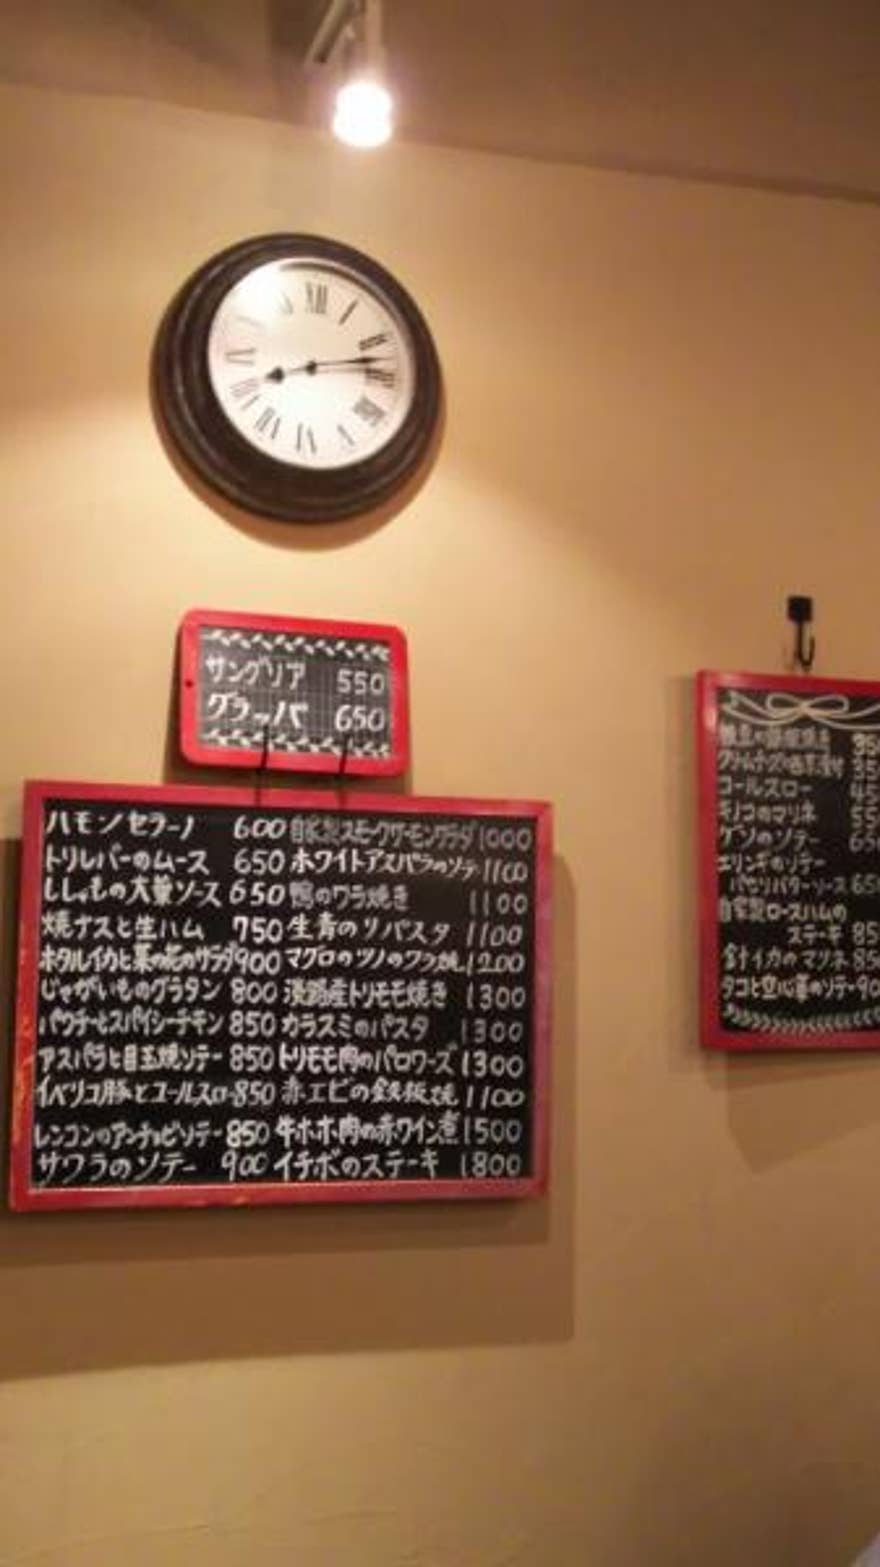 XII
サングリア 550
グラッパ 650
ハモンセラーノ 600
トリレバーのムース 650
ししゃもの大葉ソース 650
焼ナスと生ハム 750
ホタルイカと菜の花のサラダ 900
じゃがいものグラタン 800
パクチーとスパイシーチキン 850
アスパラと目玉焼ソテー 850
イベリコ豚とコールスロー 850
レンコンのアンチョビソテー 850
サワラのソテー 900
自家製スモークサーモンサラダ 1000
ホワイトアスパラのソテー 1100
鴨のワラ焼き 1100
生青のりパスタ 1100
マグロのツノのワラ焼 1200
淡路産トリモモ焼き 1300
カラスミのパスタ 1300
トリモモ肉のバロワーズ 1300
赤エビの鉄板焼 1100
牛ホホ肉の赤ワイン煮 1500
イチボのステーキ 1800
コールスロー
キノコのマリネ
ゲソのソテー
エリンギのソテー
パセリバターソース 650
自家製ロースハムの
ステーキ 85
針イカのマリネ 85
タコと空心菜のソテー 90